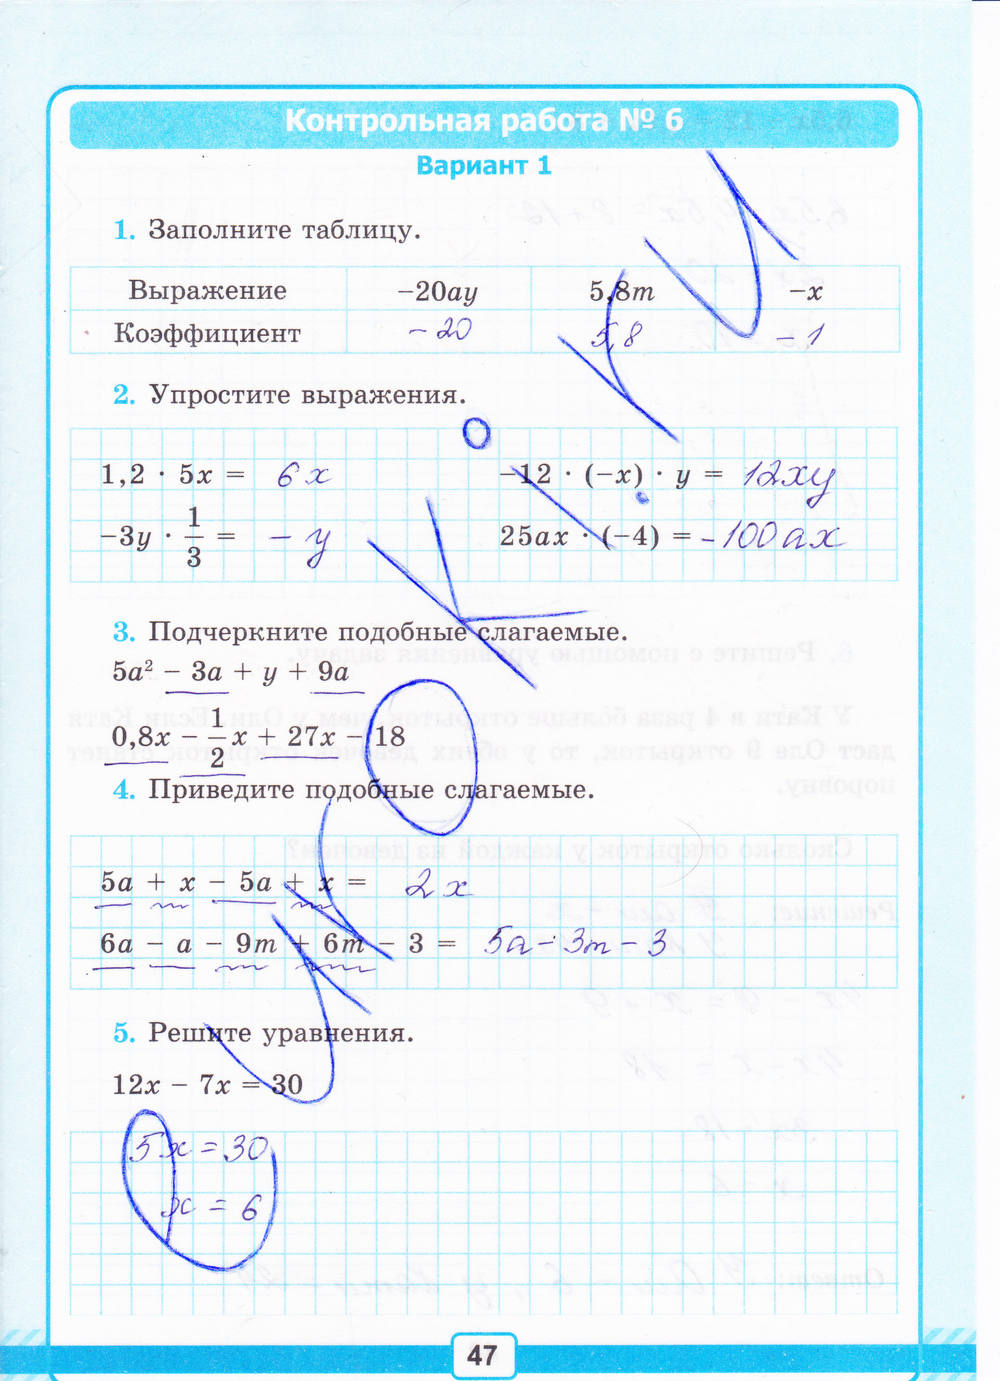 Контрольная работа № 6
Вариант 1
1. Заполните таблицу.
Выражение −20ay 5,8m −x
Коэффициент −20 5,8 −1
2. Упростите выражения.
1,2 · 5x = 6x −12 · (−x) · y = 12xy
−3y · 1/3 = −y 25ax · (−4) = −100ax
3. Подчеркните подобные слагаемые.
5a² − 3a + y + 9a
0,8x − 1/2 x + 27x − 18
4. Приведите подобные слагаемые.
5a + x − 5a + x = 2x
6a − a − 9m + 6m − 3 = 5a − 3m − 3
5. Решите уравнения.
12x − 7x = 30
5x = 30
x = 6
47